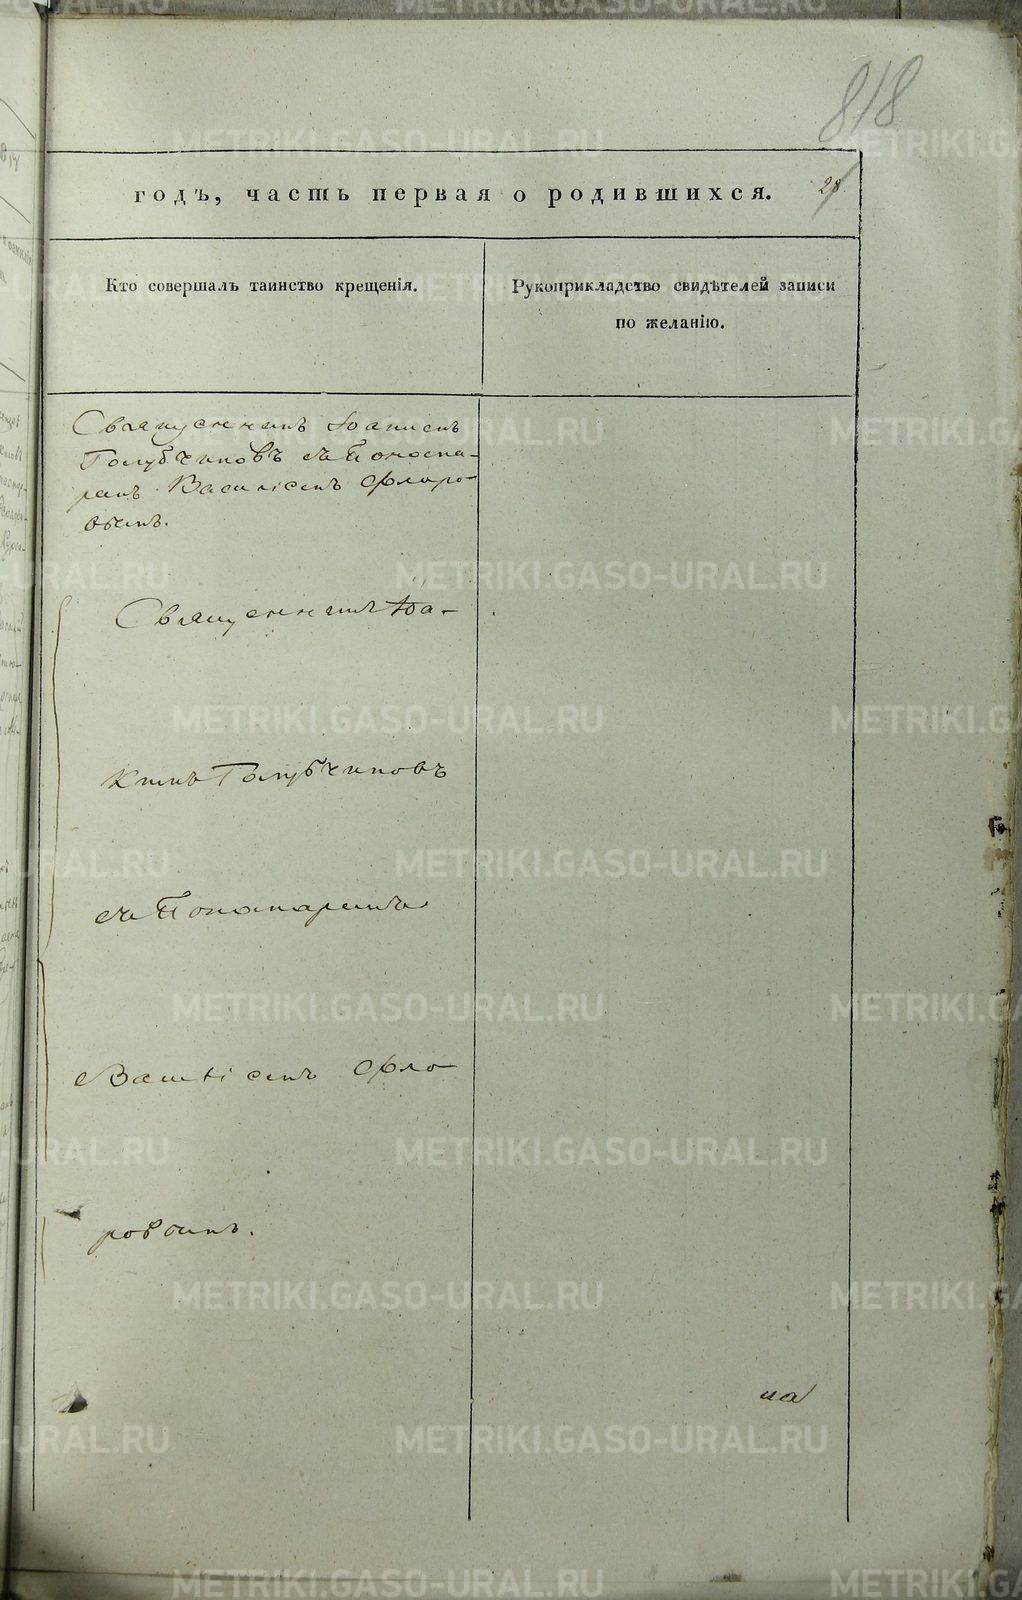 818
годъ, часть первая о родившихся.
28.
Кто совершалъ таинство крещенія.
Рукоприкладство свидѣтелей записи
по желанію.
Священникъ Іоаникій
Голубчиковъ съ Понома-
ремъ Василіемъ Флоро-
вымъ.
Священникъ Іоа-
никій Голубчиковъ
съ Пономаремъ
Василіемъ Фло
ровымъ.
на
METRIKI.GASO-URAL.RU